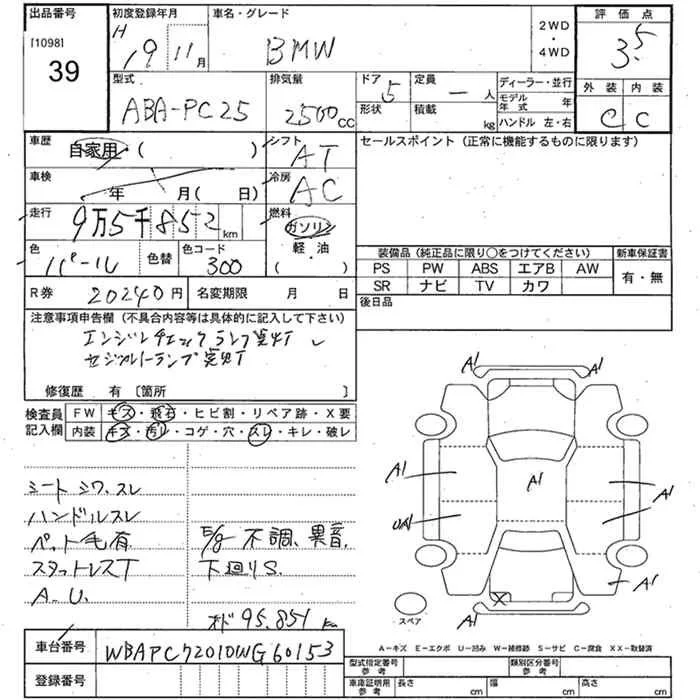 出品番号 初度登録年月 車名・グレード 2WD・4WD 評価点
[1098] 39 H 19 11月 BMW 3.5
型式 排気量 ドア 5 定員 一 人 ディーラー・並行 外装 内装
ABA-PC25 2500cc 形状 積載 kg モデル年式 年 C C
ハンドル 左・右
車歴 自家用 ( ) シフト AT セールスポイント (正常に機能するものに限ります)
車検 年 月( 日) 冷房 AC
走行 9万5千852km 燃料 ガソリン
色 パール 色替 色コード 300 軽・油 ( )
装備品 (純正品に限り○をつけてください) 新車保証書
PS PW ABS エアB AW 有・無
SR ナビ TV カワ
R券 20240円 名変期限 月 日 後日品
注意事項申告欄 (不具合内容等は具体的に記入して下さい)
エンジンチェックランプ点灯
セジカルトーランプ点灯
修復歴 有 [箇所 ]
検査員記入欄 FW キズ・飛石・ヒビ割・リペア跡・X要
内装 キズ・汚レ・コゲ・穴・スレ・キレ・破レ
シート シワ、スレ
ハンドルスレ
ペット毛有 E/g 不調、異音、
スタットレスT 下廻りS.
A-U.
オド 95.851 km
A1
A1
A1
A1
UA1
A1
A1
A1
A1
X
スペア
A-キズ E-エクボ U-凹み W-補修跡 S-サビ C-腐食 XX-取替済
車台番号 WBAPC72010WG60153
登録番号
型式指定番号 参考 類別区分番号 参考
車庫証明用 参考 長さ cm 幅 cm 高さ cm